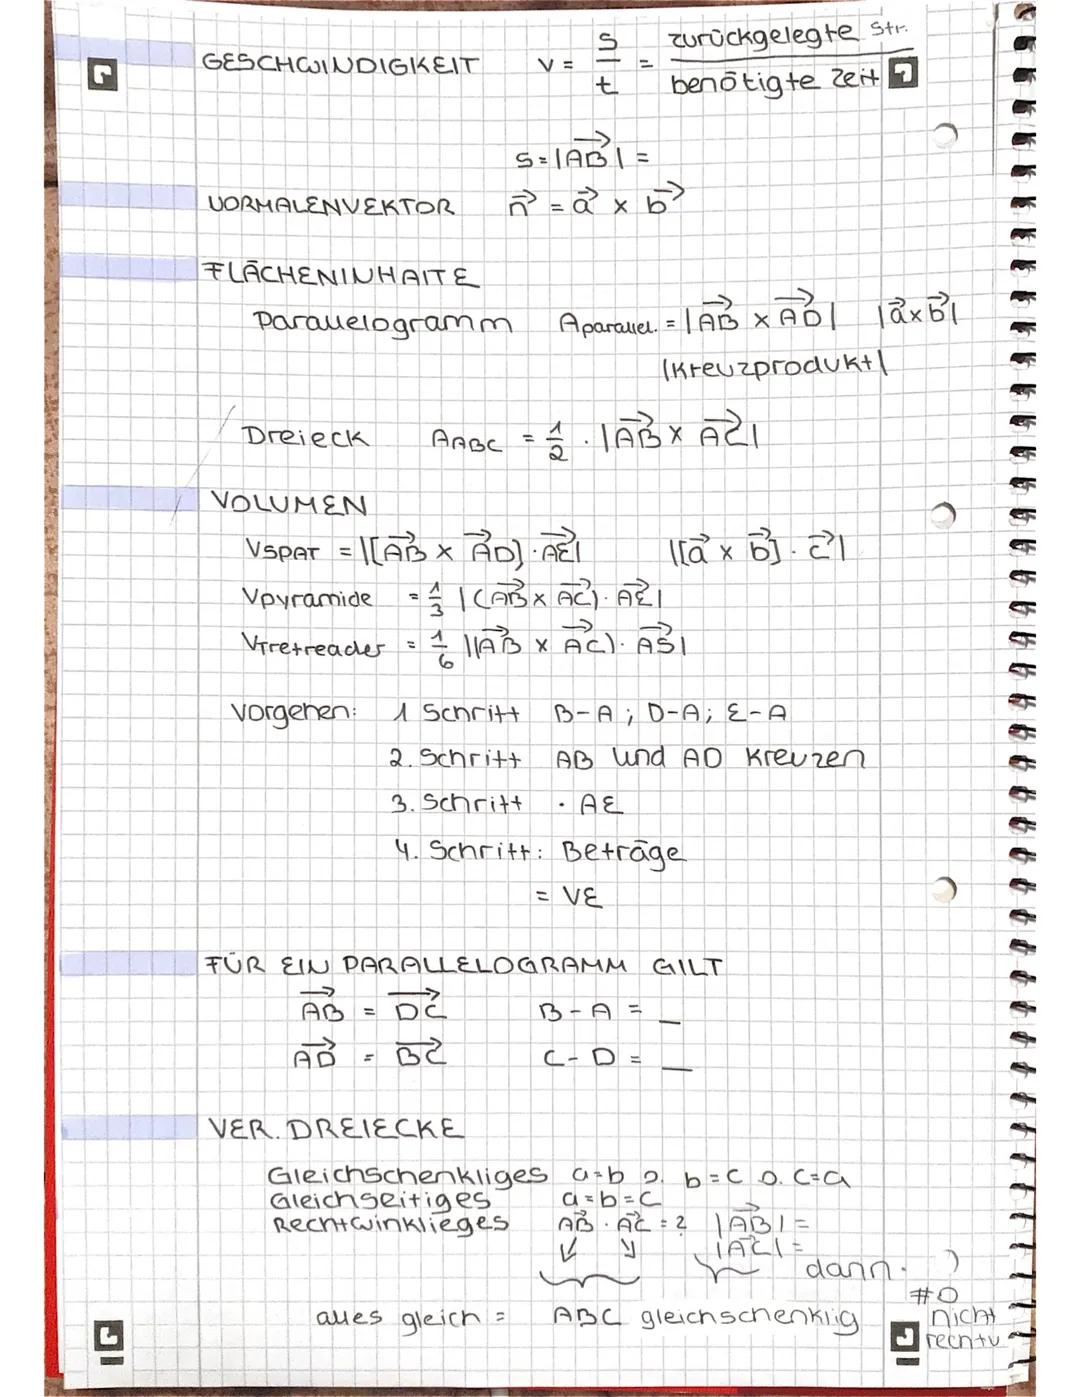 GESCHWINDIGKEIT v = s/t = zurückgelegte Str. / benötigte Zeit
s = |AB→| =
NORMALENVEKTOR n→ = a→ x b→
FLÄCHENINHALTE
Parallelogramm Aparallel. = |AB→ x AD→| |a→ x b→|
|Kreuzprodukt|
Dreieck AABC = 1/2 · |AB→ x AC→|
VOLUMEN
VSPAT = |[AB→ x AD→] · AE→| |[a→ x b→] · c→|
Vpyramide = 1/3 |(AB→ x AC→) · AE→|
VTretreader = 1/6 |(AB→ x AC→) · AS→|
Vorgehen: 1 Schritt B-A ; D-A; E-A
2. Schritt AB und AD Kreuzen
3. Schritt · AE
4. Schritt: Beträge
= VE
FÜR EIN PARALLELOGRAMM GILT
AB→ = DC→ B - A = _
AD→ = BC→ C - D = _
VER. DREIECKE
Gleichschenkliges a=b o. b=c o. c=a
Gleichseitiges a=b=c
Rechtwinklieges AB→ · AC→ = ? |AB→| =
|AC→| =
dann.
#0
nicht
rechtw
alles gleich = ABC gleichschenklig